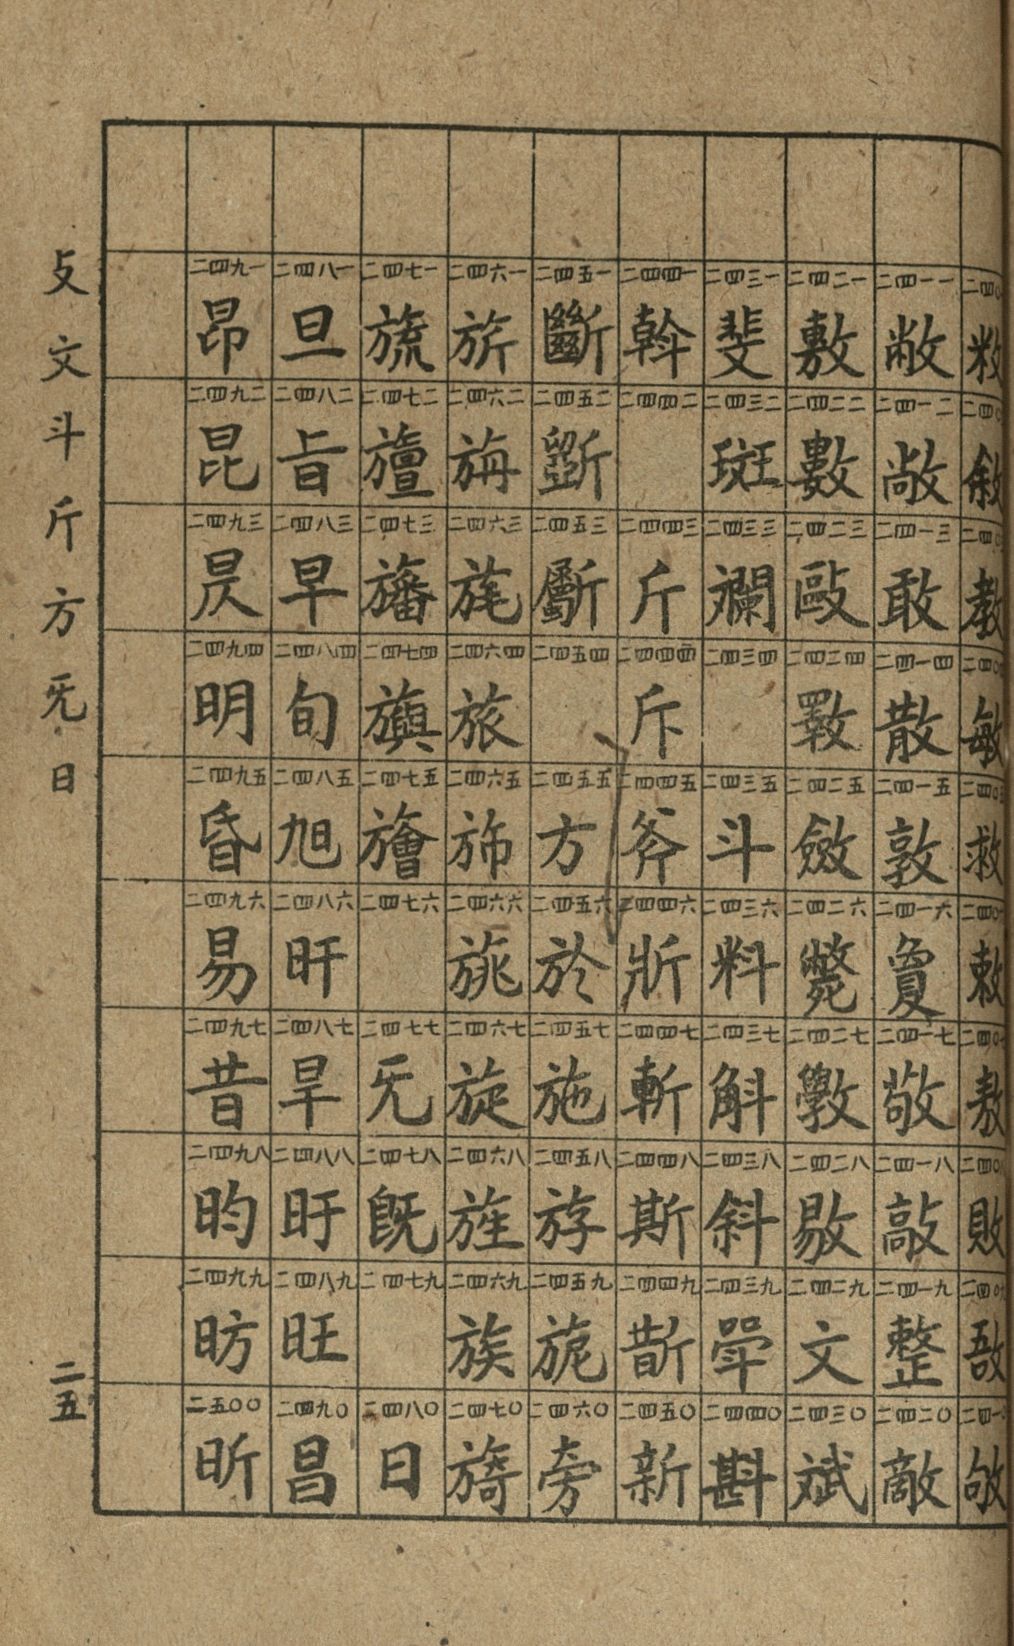 敉
敘
教
敏
救
敕
敖
敗
敔
二四一一 敝
二四一二 敞
二四一三 敢
二四一四 散
二四一五 敦
二四一六 敻
二四一七 敬
二四一八 敲
二四一九 整
二四二〇 敵
二四二一 敷
二四二二 數
二四二三 敺
二四二四 斁
二四二五 斂
二四二六 斃
二四二七 斆
二四二八 敭
二四二九 文
二四三〇 斌
二四三一 斐
二四三二 斑
二四三三 斕
二四三四
二四三五 斗
二四三六 料
二四三七 斛
二四三八 斜
二四三九 斝
二四四〇 斟
二四四一 斡
二四四二
二四四三 斤
二四四四 斥
二四四五 斧
二四四六 斨
二四四七 斬
二四四八 斯
二四四九 斮
二四五〇 新
二四五一 斷
二四五二 斲
二四五三 斸
二四五四
二四五五 方
二四五六 於
二四五七 施
二四五八 斿
二四五九 旎
二四六〇 旁
二四六一 旂
二四六二 旃
二四六三 旄
二四六四 旅
二四六五 旆
二四六六 旐
二四六七 旋
二四六八 旌
二四六九 族
二四七〇 旖
二四七一 旒
二四七二 旜
二四七三 旛
二四七四 旟
二四七五 旝
二四七六
二四七七 旡
二四七八 既
二四七九
二四八〇 日
二四八一 旦
二四八二 旨
二四八三 早
二四八四 旬
二四八五 旭
二四八六 旰
二四八七 旱
二四八八 旴
二四八九 旺
二四九〇 昌
二四九一 昂
二四九二 昆
二四九三 昃
二四九四 明
二四九五 昏
二四九六 易
二四九七 昔
二四九八 昀
二四九九 昉
二五〇〇 昕
攴文斗斤方旡日
二五